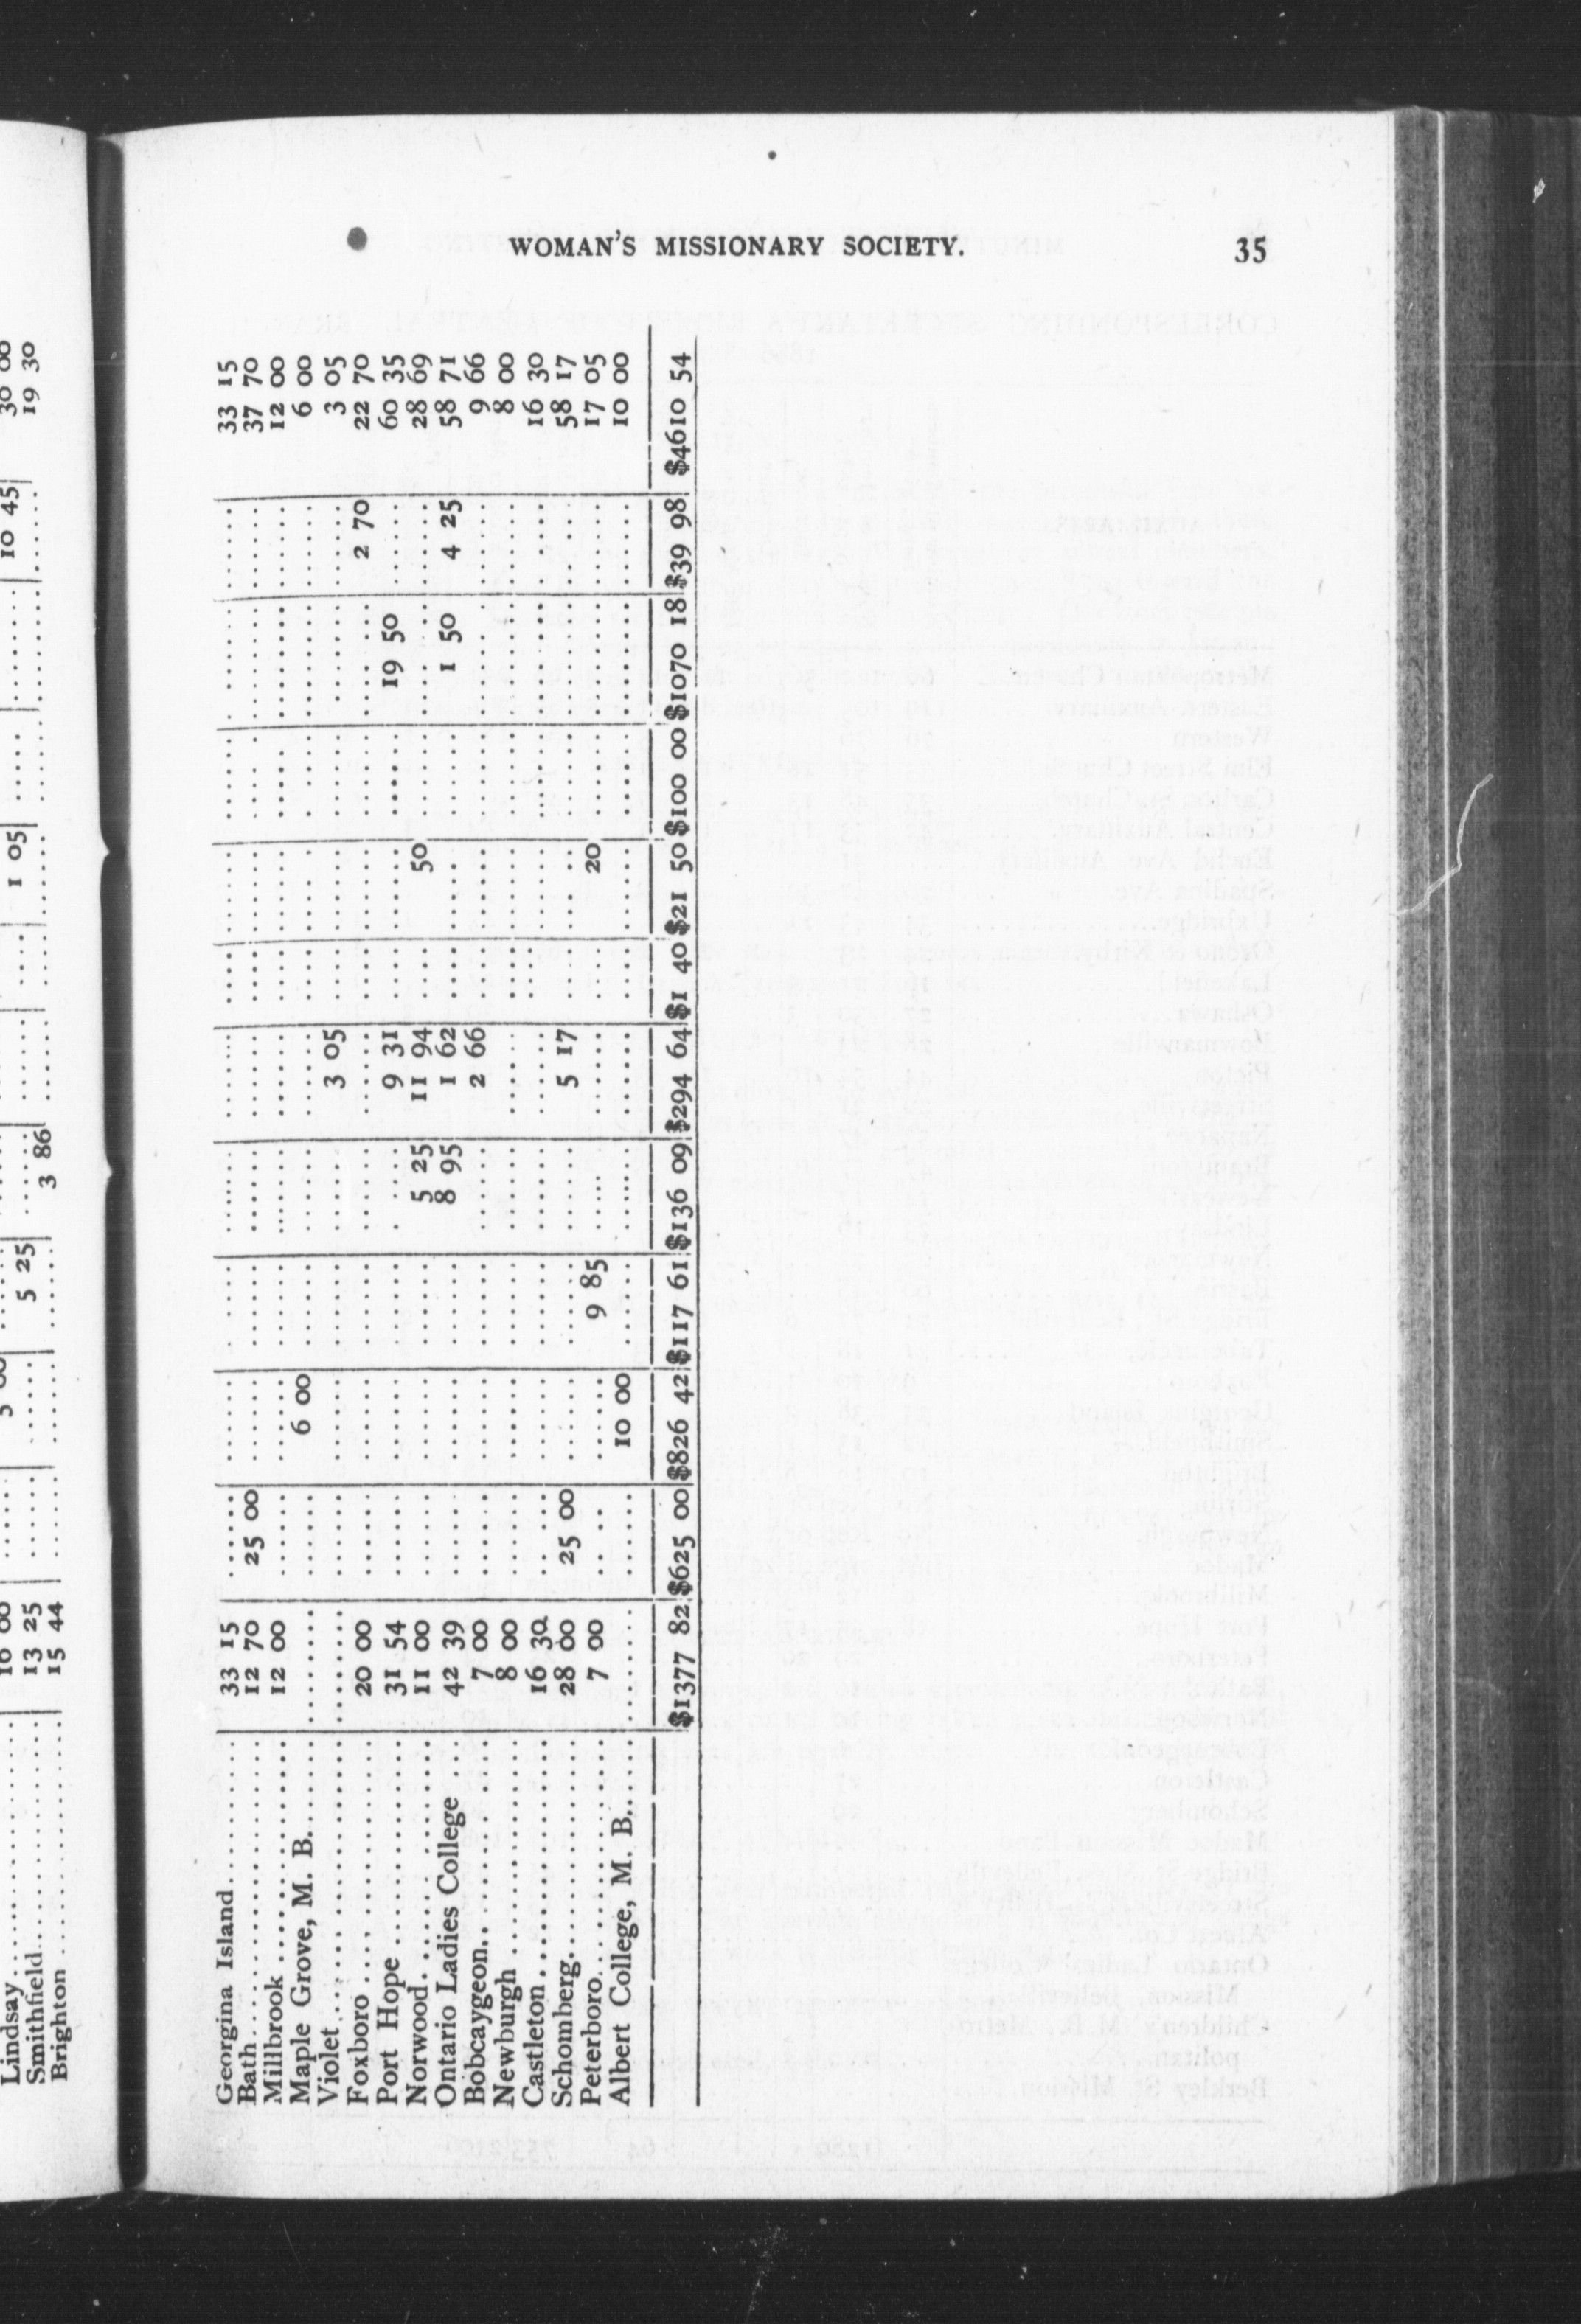 WOMAN'S MISSIONARY SOCIETY. 35
Lindsay 10 00 30 00
Smithfield 13 25 5 25 19 30
Brighton 15 44 3 86
1 05 10 45
Georgina Island 33 15 33 15
Bath 12 70 25 00 37 70
Millbrook 12 00 12 00
Maple Grove, M. B. 6 00 6 00
Violet 3 05 3 05
Foxboro 20 00 2 70 22 70
Port Hope 31 54 9 31 19 50 60 35
Norwood 11 00 5 25 11 94 50 28 69
Ontario Ladies College 42 39 8 95 1 62 1 50 4 25 58 71
Bobcaygeon 7 00 2 66 9 66
Newburgh 8 00 8 00
Castleton 16 30 16 30
Schomberg 28 00 25 00 5 17 58 17
Peterboro 7 00 9 85 20 17 05
Albert College, M. B. 10 00 10 00
$1377 82 $625 00 $826 42 $117 61 $136 09 $294 64 $1 40 $21 50 $100 00 $1070 18 $39 98 $4610 54